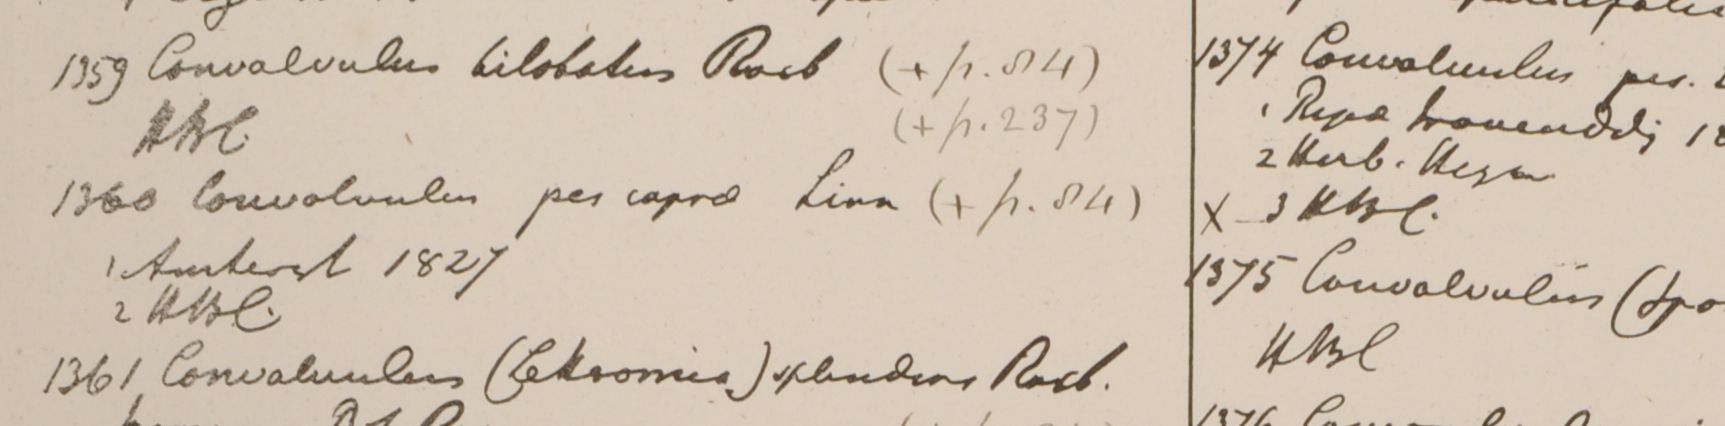 1359 Convolvulus bilobatus Roxb (+ p. 84)
HBC. (+ p. 237)
1360 Convolvulus pes capræ Linn (+ p. 84)
1 Amherst 1827
2 HBC.
1361 Convolvulus (Lettsomia) splendens Roxb.
1374 Convolvulus pes.
1 Ripa Irawenddi, 18
2 Herb. Heyn
X 3 HBC.
1375 Convolvulus (
HBC
1376